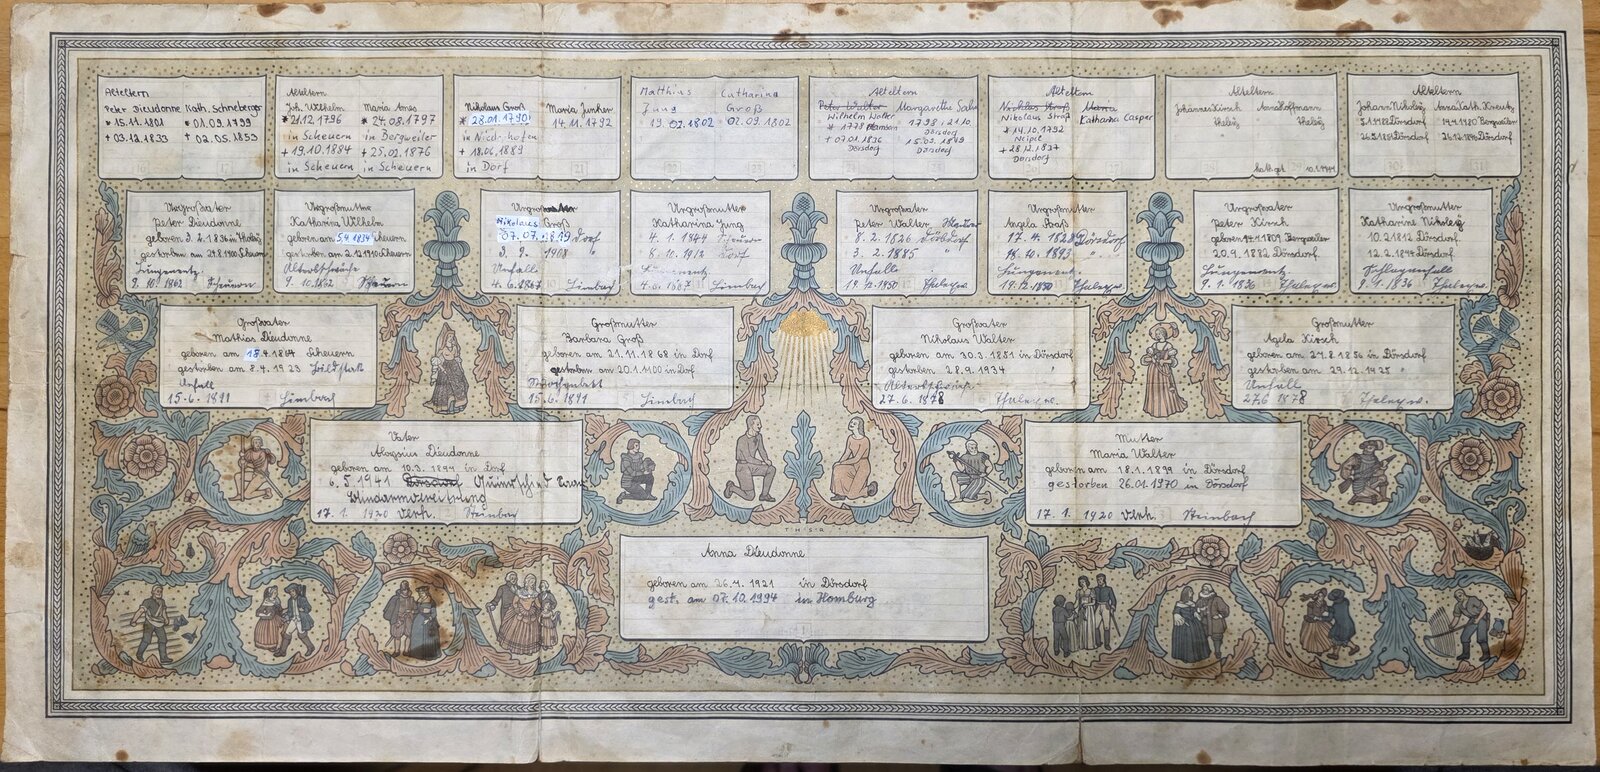 Alteltern
Peter Dieudonne Kath. Schneberger
* 15.11.1801 * 01.09.1799
+ 03.12.1833 + 02.05.1853
Alteltern
Joh. Wilhelm Maria Ames
* 21.12.1796 * 24.08.1797
in Scheuern in Bergweiler
+ 19.10.1884 + 25.02.1876
in Scheuern in Scheuern
Nikolaus Groß Maria Junker
* 28.01.1790 14.11.1792
in Niedr.hofen
+ 18.06.1889
in Dorf
Matthias Catharina
Jung Groß
19.02.1802 02.09.1802
Alteltern
Peter Walter Margaretha
Wilhelm Walter
* 1778 1798, 21.10
Dörsdorf
+ 07.01.1836 15.03.1849
Dörsdorf Dörsdorf
Alteltern
Nikolaus Groß Maria
Nikolaus Straß Katharina Casper
* 14.10.1792
Neipel
+ 28.12.1837
Dörsdorf
Alteltern
Johannes Kirsch Anna Hoffmann
Theley Theley
10.1.1944
Alteltern
Johann Nikolay Anna Kath. Kreutz
5.1.1788 Dörsdorf 14.4.1780 Bergweiler
26.5.1851 Dörsdorf 26.12.1846 Dörsdorf
Urgroßvater
Peter Dieudonne
geboren 3.4.1836 in
gestorben am 21.8.1900 Scheuern
Lungenentz.
9.10.1862 Scheuern
Urgroßmutter
Katharina Wilhelm
geboren am 5.4.1834 Scheuern
gestorben am 2.12.1910 Scheuern
Altersschwäche
9.10.1862 Scheuern
Urgroßvater
Nikolaus Groß
07.07.1839 Dorf
3.9. 1908
Unfall
4.6.1867 Limbach
Urgroßmutter
Katharina Jung
4.1.1844 Scheuern
8.10.1912 Dorf
Lungenentz.
4.6.1867 Limbach
Urgroßvater
Peter Walter
8.2.1826 Dörsdorf
3.2.1885 "
Unfall
19.12.1850 Thaleyw.
Urgroßmutter
Angela Straß
17.4.1828 Dörsdorf
18.10.1893 "
Lungenentz.
19.12.1850 Thaleyw.
Urgroßvater
Peter Kirsch
geboren 14.4.1809 Bergweiler
20.9.1882 Dörsdorf
Lungenentz.
9.1.1836 Thaleyw.
Urgroßmutter
Katharina Nikolay
10.2.1812 Dörsdorf
12.2.1872 Dörsdorf
Schlaganfall
9.1.1836 Thaleyw.
Großvater
Mathias Dieudonne
geboren am Scheuern
gestorben am 8.4.1923
Unfall
15.6.1891 Limbach
Großmutter
Barbara Groß
geboren am 21.11.1868 in Dorf
gestorben am 20.1.1900 in Dorf
15.6.1891 Limbach
Großvater
Nikolaus Walter
geboren am 30.3.1851 in Dörsdorf
gestorben 28.9.1934 "
Altersschwäche
27.6.1878 Thaleyw.
Großmutter
Agela Kirsch
geboren am 27.2.1850 in Dörsdorf
gestorben am 29.12.1925 "
Unfall
27.6 1878 Thaleyw.
Vater
Aloysius Dieudonne
geboren am 10.3.1894 in Dorf
6.5.1941 Dörsdorf
Blinddarmvereiterung
17.1.1920 verh. Steinbach
Mutter
Maria Walter
geboren am 18.1.1899 in Dörsdorf
gestorben 26.01.1970 in Dörsdorf
17.1.1920 verh. Steinbach
T·H·S·R
Anna Dieudonne
geboren am 26.4.1921 in Dörsdorf
gest. am 07.10.1994 in Homburg